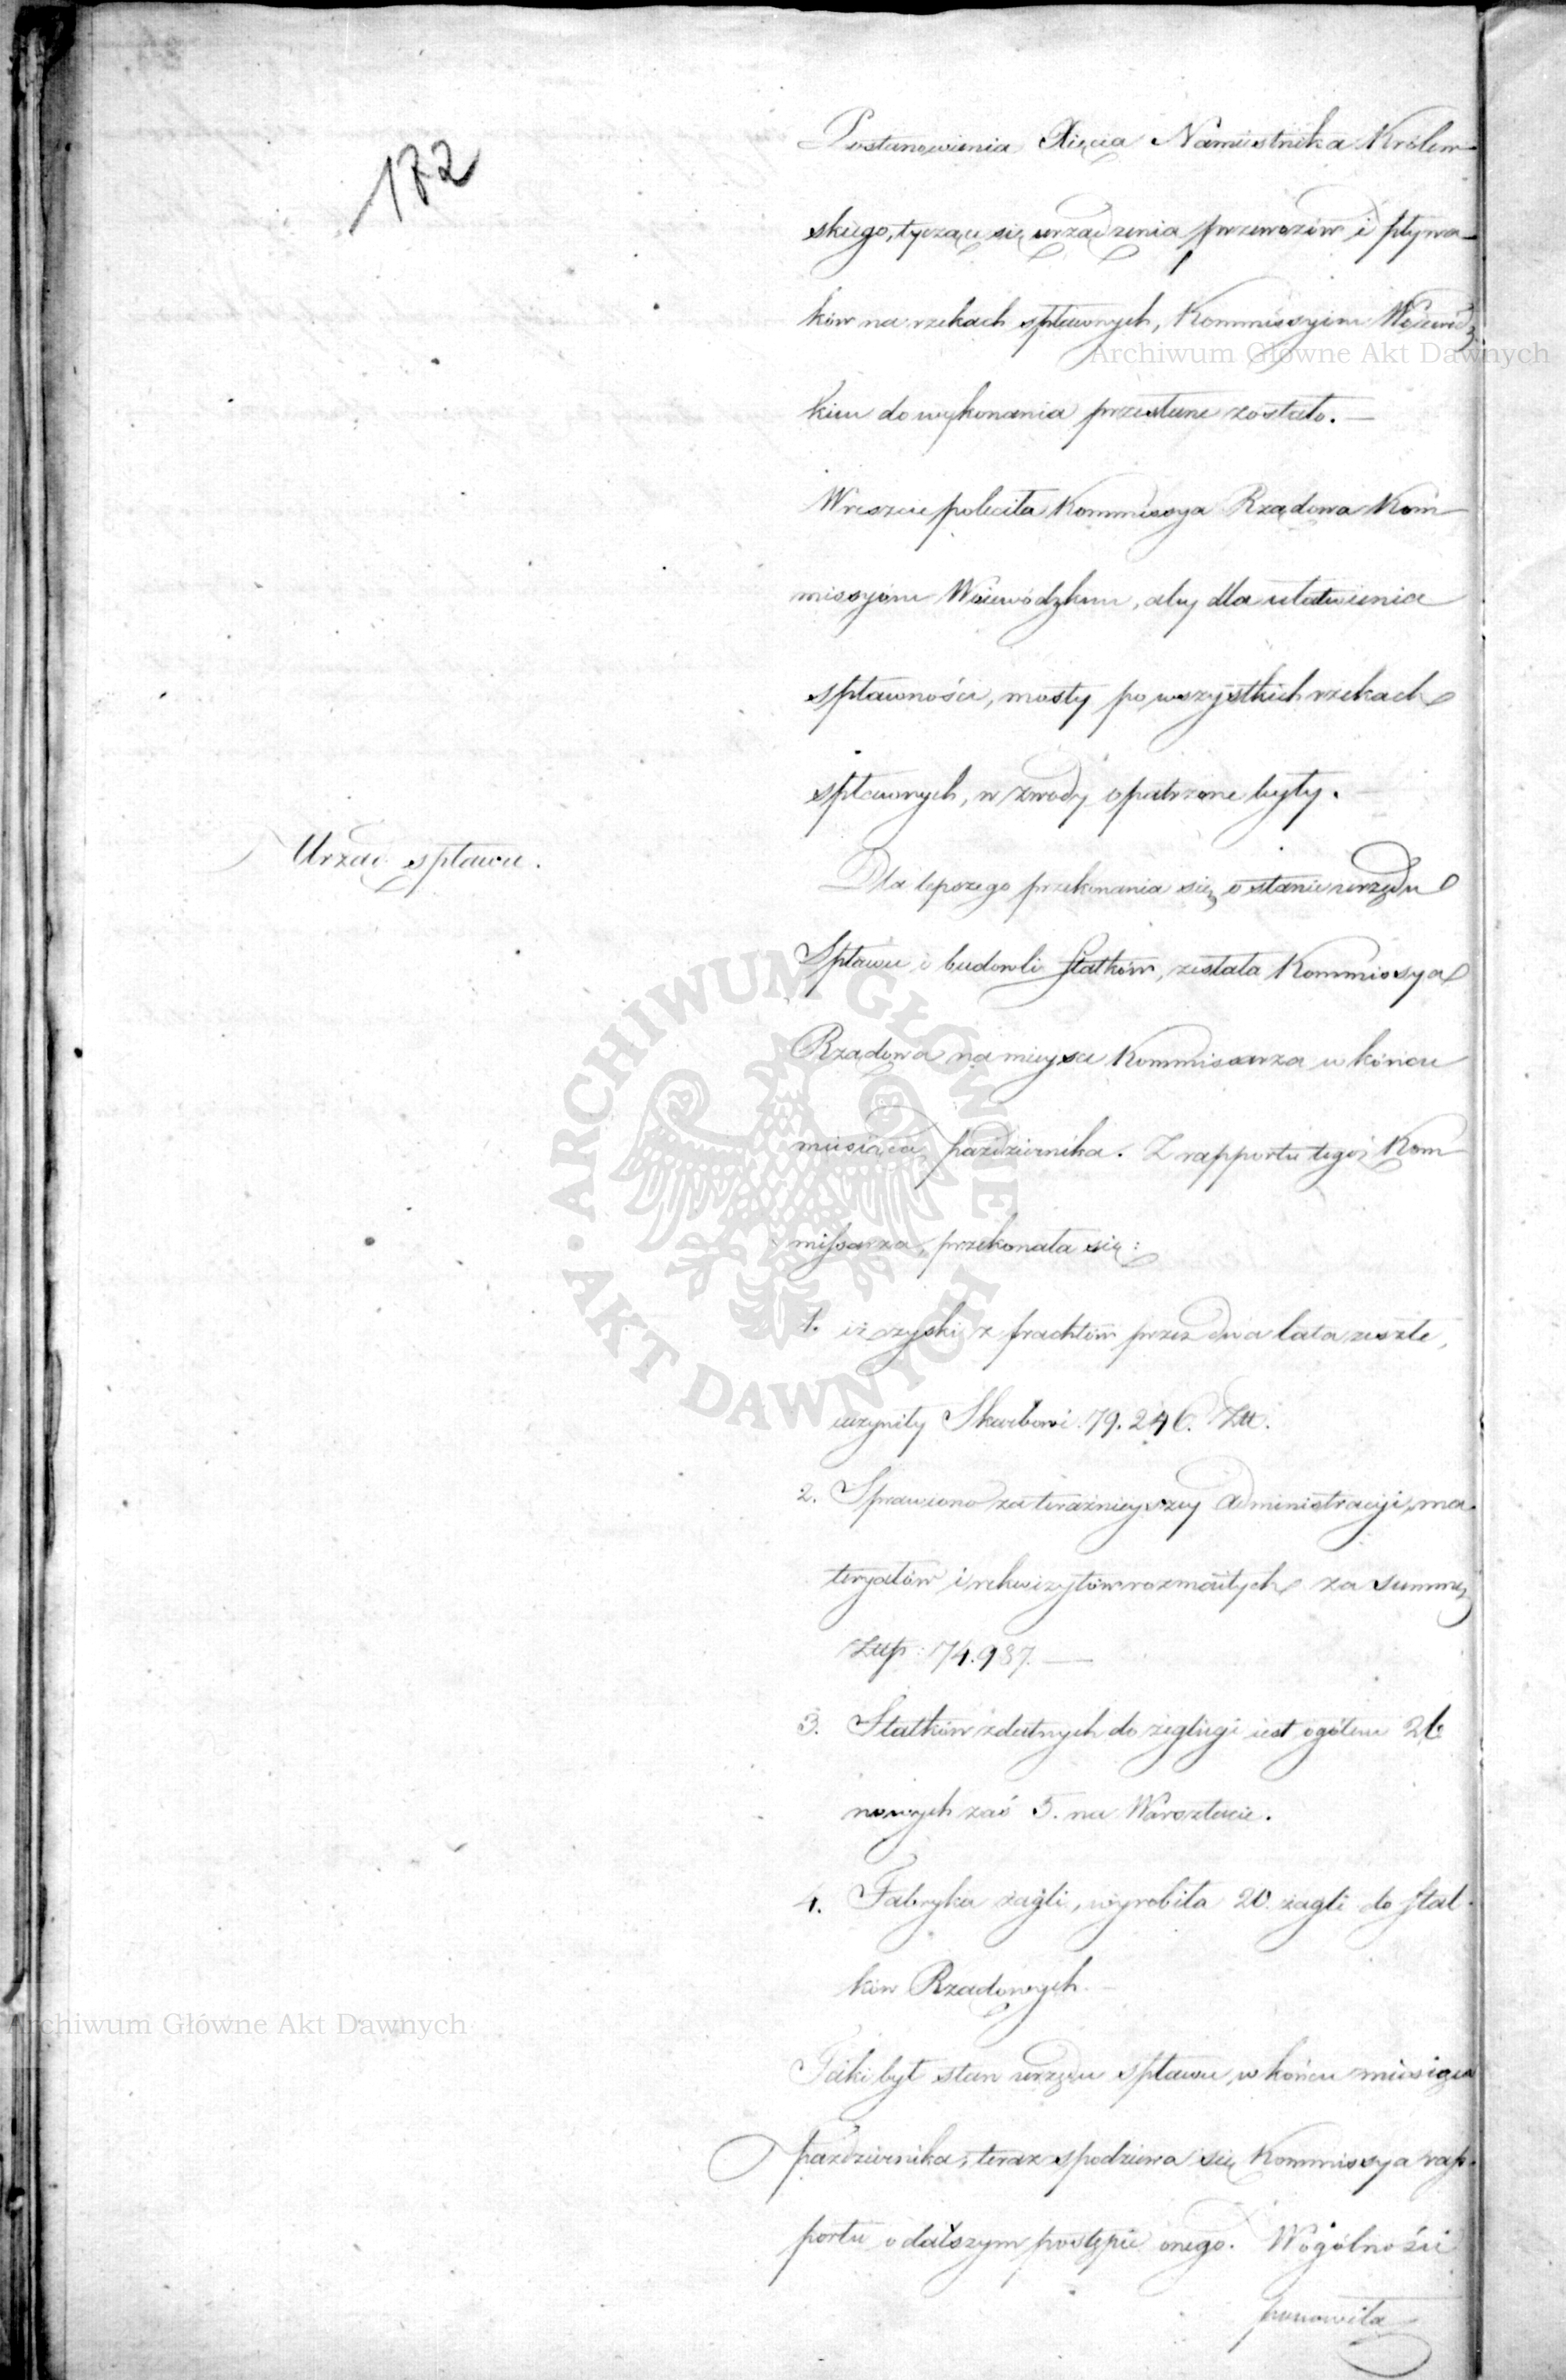 172
Postanowienia Xięcia Namiestnika Królew-
skiego, tyczące się urządzenia przewozów i pływa-
ków na rzekach spławnych, Kommissyiom Wojewódz
Archiwum Główne Akt Dawnych
kim do wykonania przesłane zostało. —
Wreszcie poleciła Kommissya Rządowa Kom-
missyiom Woiewódzkim, aby dla ułatwienia
spławności, mosty po wszystkich rzekach
spławnych, w zwody opatrzone były. —
Urząd spławu.
Dla lepszego przekonania się, o stanie urzędu
Spławu i budowli Statków, zesłała Kommissya
Rządowa na mieysce Kommissarza w końcu
miesiąca października. Z rapportu tegoż Kom-
missarza, przekonała się:
1. iż zyski z frachtów przez dwa lata zeszłe,
uczyniły Skarbowi 79.246. Złł.
2. Sprawiono za teraźnieyszey administracyi, ma
teryałów i rekwizytów rozmaitych za summę
Złłp: 74.987. —
3. Statków zdatnych do żeglugi iest ogółem 26
nowych zaś 5. na Warsztacie.
4. Fabryka żagli, wyrobiła 20. żagli do stat-
ków Rządowych. —
Archiwum Główne Akt Dawnych
Taki był stan urzędu spławu, w końcu miesiąca
października, teraz spodziewa się Kommissya rap-
portu o dalszym postępie onego. W ogólności
ponowiła
ARCHIWUM GŁÓWNE AKT DAWNYCH